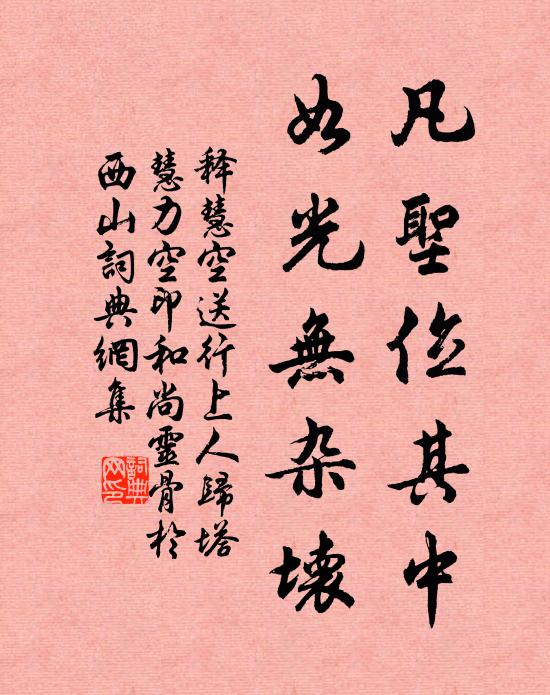 凡聖位其中
如光無杂壞
释慧空送行上人歸塔
慧力空印和尚靈骨於
西山詞典網集
詞典
网印